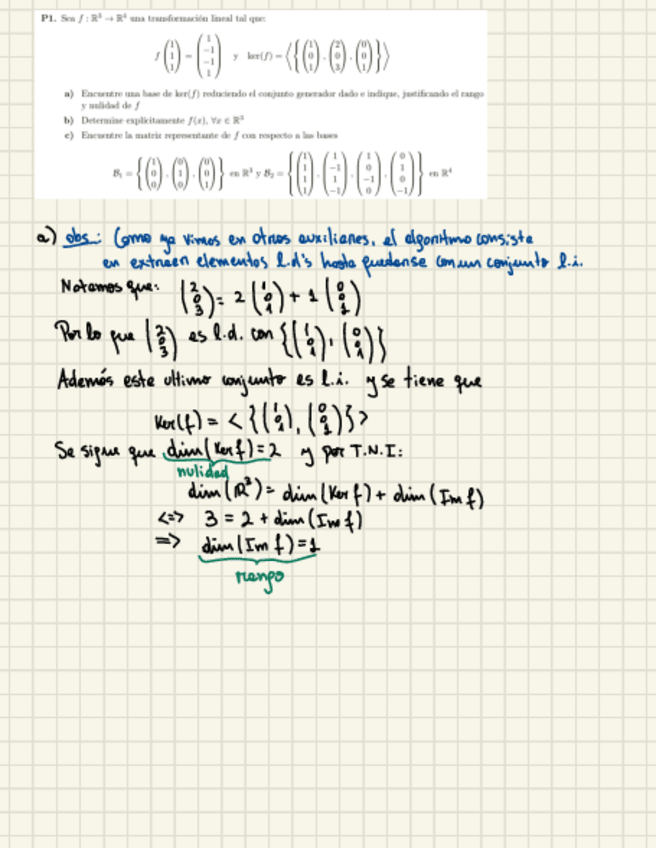 P1. Sea f : ℝ³ → ℝ⁴ una transformación lineal tal que:
f(1 1 1) = (1 -1 -1 1) y ker(f) = ⟨{(1 0 1), (2 0 3), (0 0 1)}⟩
a) Encuentre una base de ker(f) reduciendo el conjunto generador dado e indique, justificando el rango
y nulidad de f
b) Determine explícitamente f(x), ∀x ∈ ℝ³
c) Encuentre la matriz representante de f con respecto a las bases
ℬ₁ = {(1 0 0), (0 1 0), (0 0 1)} en ℝ³ y ℬ₂ = {(1 1 1 1), (1 -1 1 -1), (1 0 -1 0), (0 1 0 -1)} en ℝ⁴
a) obs: Como ya vimos en otros auxiliares, el algoritmo consiste
en extraer elementos l.d's hasta quedarse con un conjunto l.i.
Notamos que: (2 0 3) = 2 (1 0 1) + 1 (0 0 1)
Por lo que (2 0 3) es l.d. con {(1 0 1), (0 0 1)}
Además este ultimo conjunto es l.i. y se tiene que
Ker(f) = < {(1 0 1), (0 0 1)} >
Se sigue que dim(Ker f) = 2 y por T.N.I:
nulidad
dim(ℝ³) = dim(Ker f) + dim(Im f)
<=> 3 = 2 + dim(Im f)
=> dim(Im f) = 1
rango